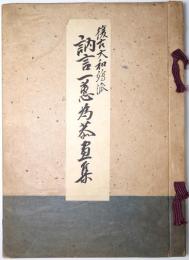 復古大和絵派
訥言一蕙為恭画集